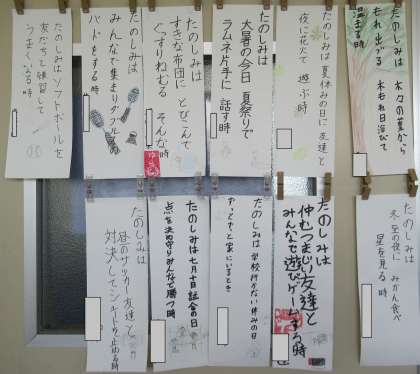 たのしみは
木々の葉から
もれ出づる
木もれ日浴びて
温まる時
たのしみは夏休みの日に友達と
夜に花火で
遊ぶ時
たのしみは
大暑の今日
夏祭りで
ラムネ片手に
話す時
たのしみは
すきな布団に
とびこんで
ぐっすりねむる
そんな時
たのしみは
みんなで集まりダブルス
バドをする時
たのしみはソフトボールを
友だちと練習して
うまくいる時
たのしみは
冬至の夜に
みかん食べ
星を見る時
たのしみは
仲むつまじい友達と
みんなで遊びゲームする時
たのしみは
学校行かない休みの日
家にいるとき
たのしみは七月十日試合の日
点を決め守りみんなで勝つ時
たのしみは
昼のサッカー友達と
対決して
止める時